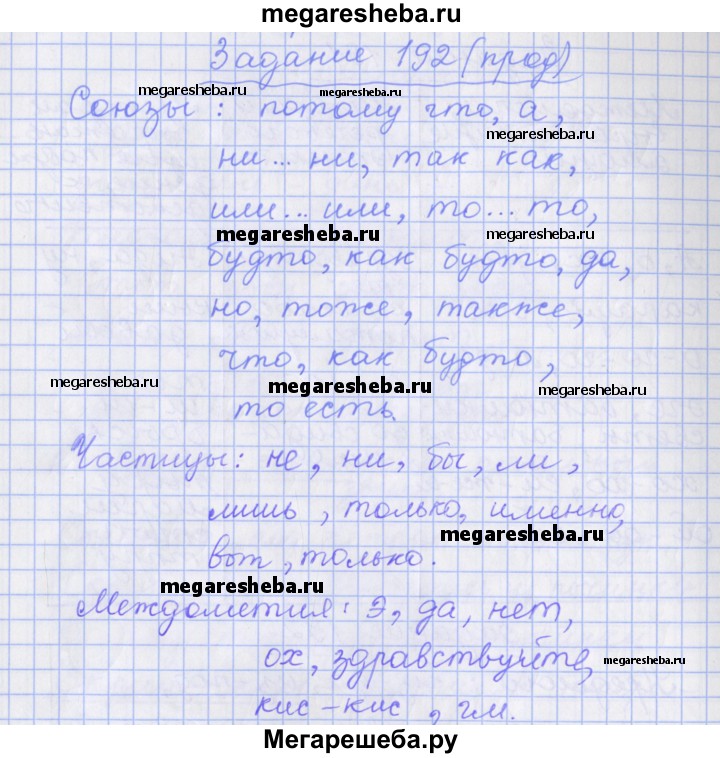 megaresheba.ru
Задание 192 (прод)
megaresheba.ru
megaresheba.ru
Союзы: потому что, а,
megaresheba.ru
ни... ни, так как,
или... или, то... то,
megaresheba.ru
megaresheba.ru
будто, как будто, да,
но, тоже, также,
что, как будто,
megaresheba.ru
megaresheba.ru
megaresheba.ru
то есть.
Частицы: не, ни, бы, ли,
лишь, только, именно,
megaresheba.ru
вот, только.
megaresheba.ru
Междометия: Э, да, нет,
ох, здравствуйте,
megaresheba.ru
кис-кис, гм.
Мегарешеба.ру